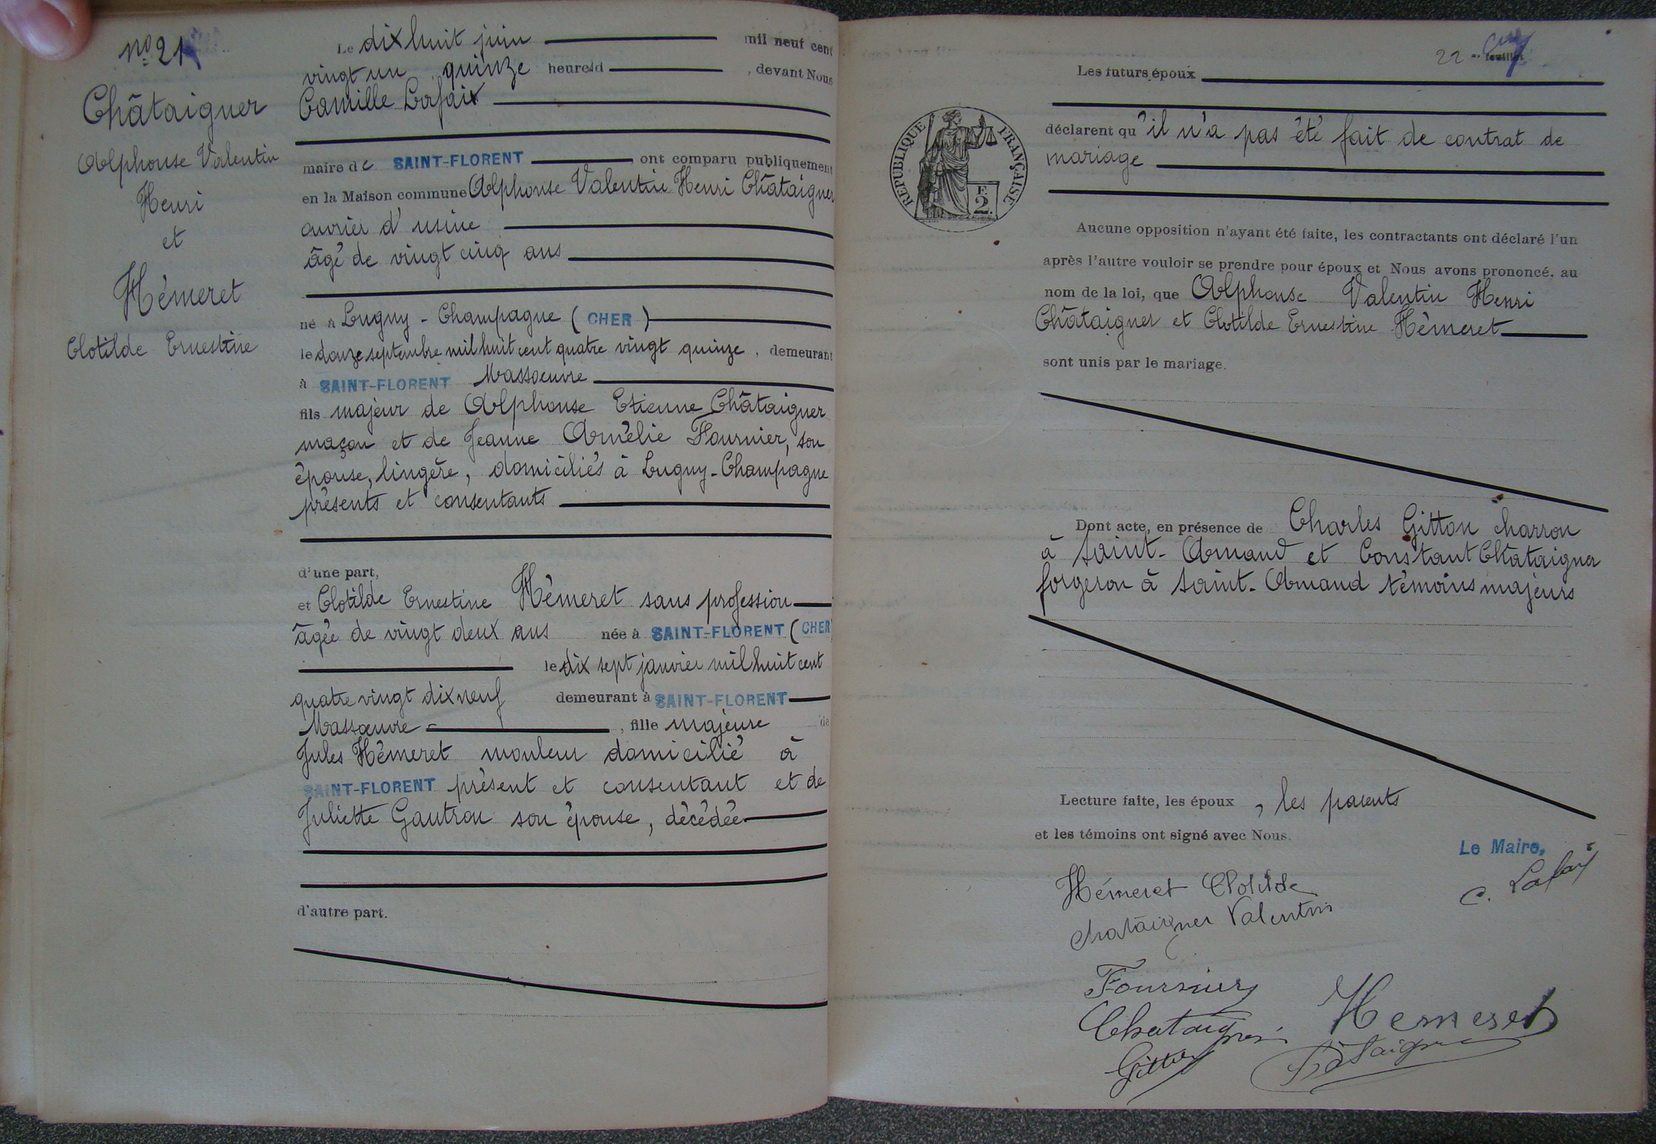 nº 21
Châtaigner
Alphonse Valentin
Henri
et
Hémeret
Clotilde Ernestine
Le dix huit juin mil neuf cent
vingt un quinze heures , devant Nous
Camille Lafaix
maire de SAINT-FLORENT ont comparu publiquement
en la Maison commune Alphonse Valentin Henri Châtaigner
ouvrier d'usine
âgé de vingt cinq ans
né à Lugny-Champagne (CHER)
le douze septembre mil huit cent quatre vingt quinze, demeurant
à SAINT-FLORENT Massoeuvre
fils majeur de Alphonse Etienne Châtaigner
maçon et de Jeanne Amélie Fournier, son
épouse, lingère, domiciliés à Lugny-Champagne
présents et consentants
d'une part,
et Clotilde Ernestine Hémeret sans profession
âgée de vingt deux ans née à SAINT-FLORENT (CHER
le dix sept janvier mil huit cent
quatre vingt dix neuf demeurant à SAINT-FLORENT
Massoeuvre , fille majeure de
Jules Hémeret mouleur domicilié à
SAINT-FLORENT présent et consentant et de
Juliette Gautron son épouse, décédée
d'autre part.
22
feuillet
RÉPUBLIQUE FRANÇAISE
F
2
Les futurs époux
déclarent qu'il n'a pas été fait de contrat de
mariage
Aucune opposition n'ayant été faite, les contractants ont déclaré l'un
après l'autre vouloir se prendre pour époux et Nous avons prononcé, au
nom de la loi, que Alphonse Valentin Henri
Châtaigner et Clotilde Ernestine Hémeret
sont unis par le mariage.
Dont acte, en présence de Charles Gitton charron
à Saint-Amand et Constant Châtaigner
forgeron à Saint-Amand témoins majeurs
Lecture faite, les époux, les parents
et les témoins ont signé avec Nous.
Le Maire,
C. Lafaix
Hémeret Clotilde
Chataigner Valentin
Fournier
Hemeret
Chataigner
Gitton